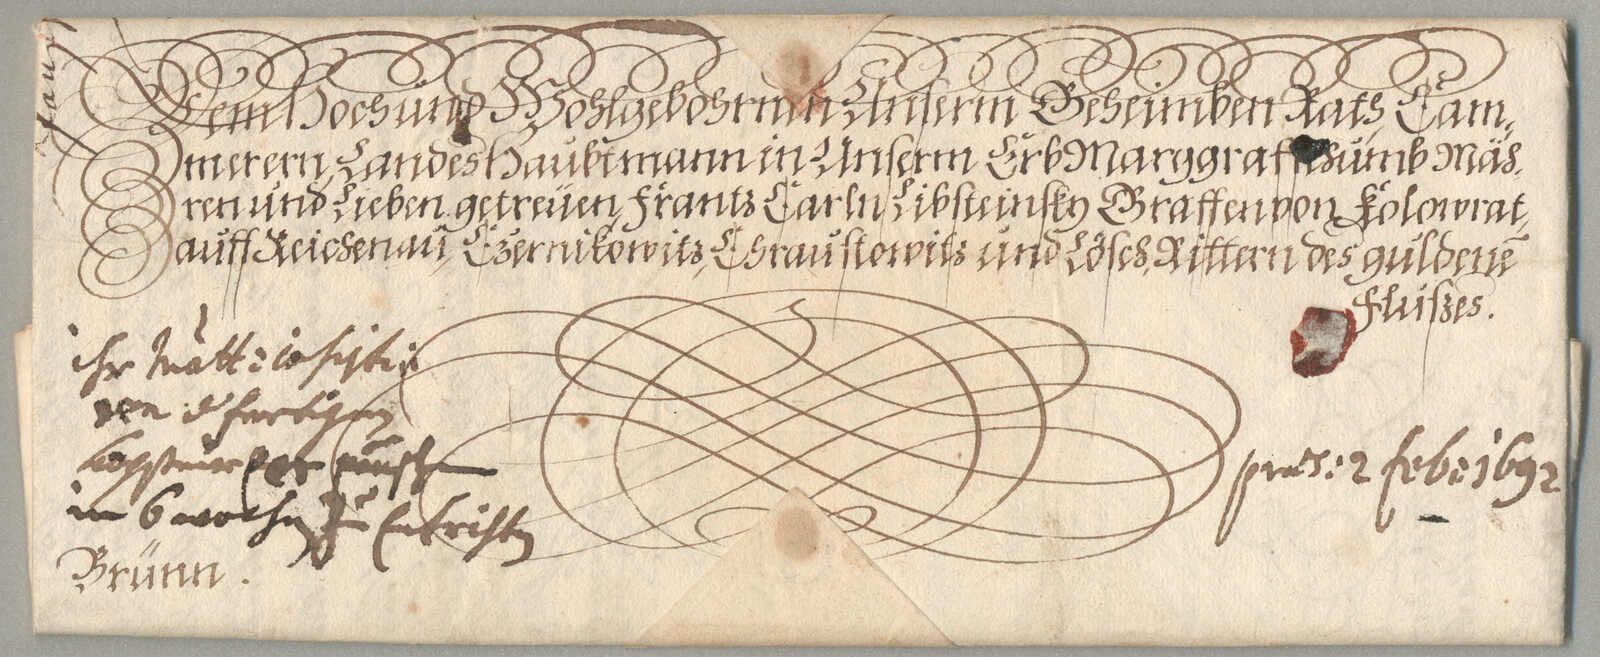 Dem Hoch und Wohlgebohrnen Unserm Geheimben Rath, Cam,,
merern, Landeshaubtmann in Unserm Erb Marggraffthumb Mäh,,
ren und Lieben getreüen, Frantz Carln Libsteinsky Graffen von Kolowrat,
auff Reichenau, Czernikowitz, Chraustowitz und Lösch, Rittern des guldenē
Flußes.
ihr Maÿtt:
von
in 6 wochen zu Entrichten
præs: 2 feb: 1692
Brünn.